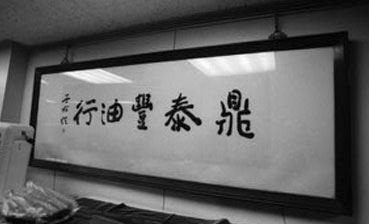 鼎泰豐油行